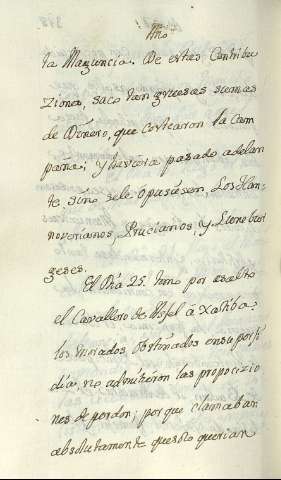 la Maguncia. De estas Contribu
ziones, saco tan gruesas sumas
de Dinero, que costearon la Cam
paña; y huviera pasado adelan
te, sino se le opusiesen, Los Han
noverianos, Prucianos, y Lunebur
geses.
El Dia 25. tomo por asalto
el Cavallero de Asfel á Xatiba:
los Morados, obstinados en su porfi
dia, no admitieron las propocizio
nes de perdon; porque clamaban
absolutamente que solo querian